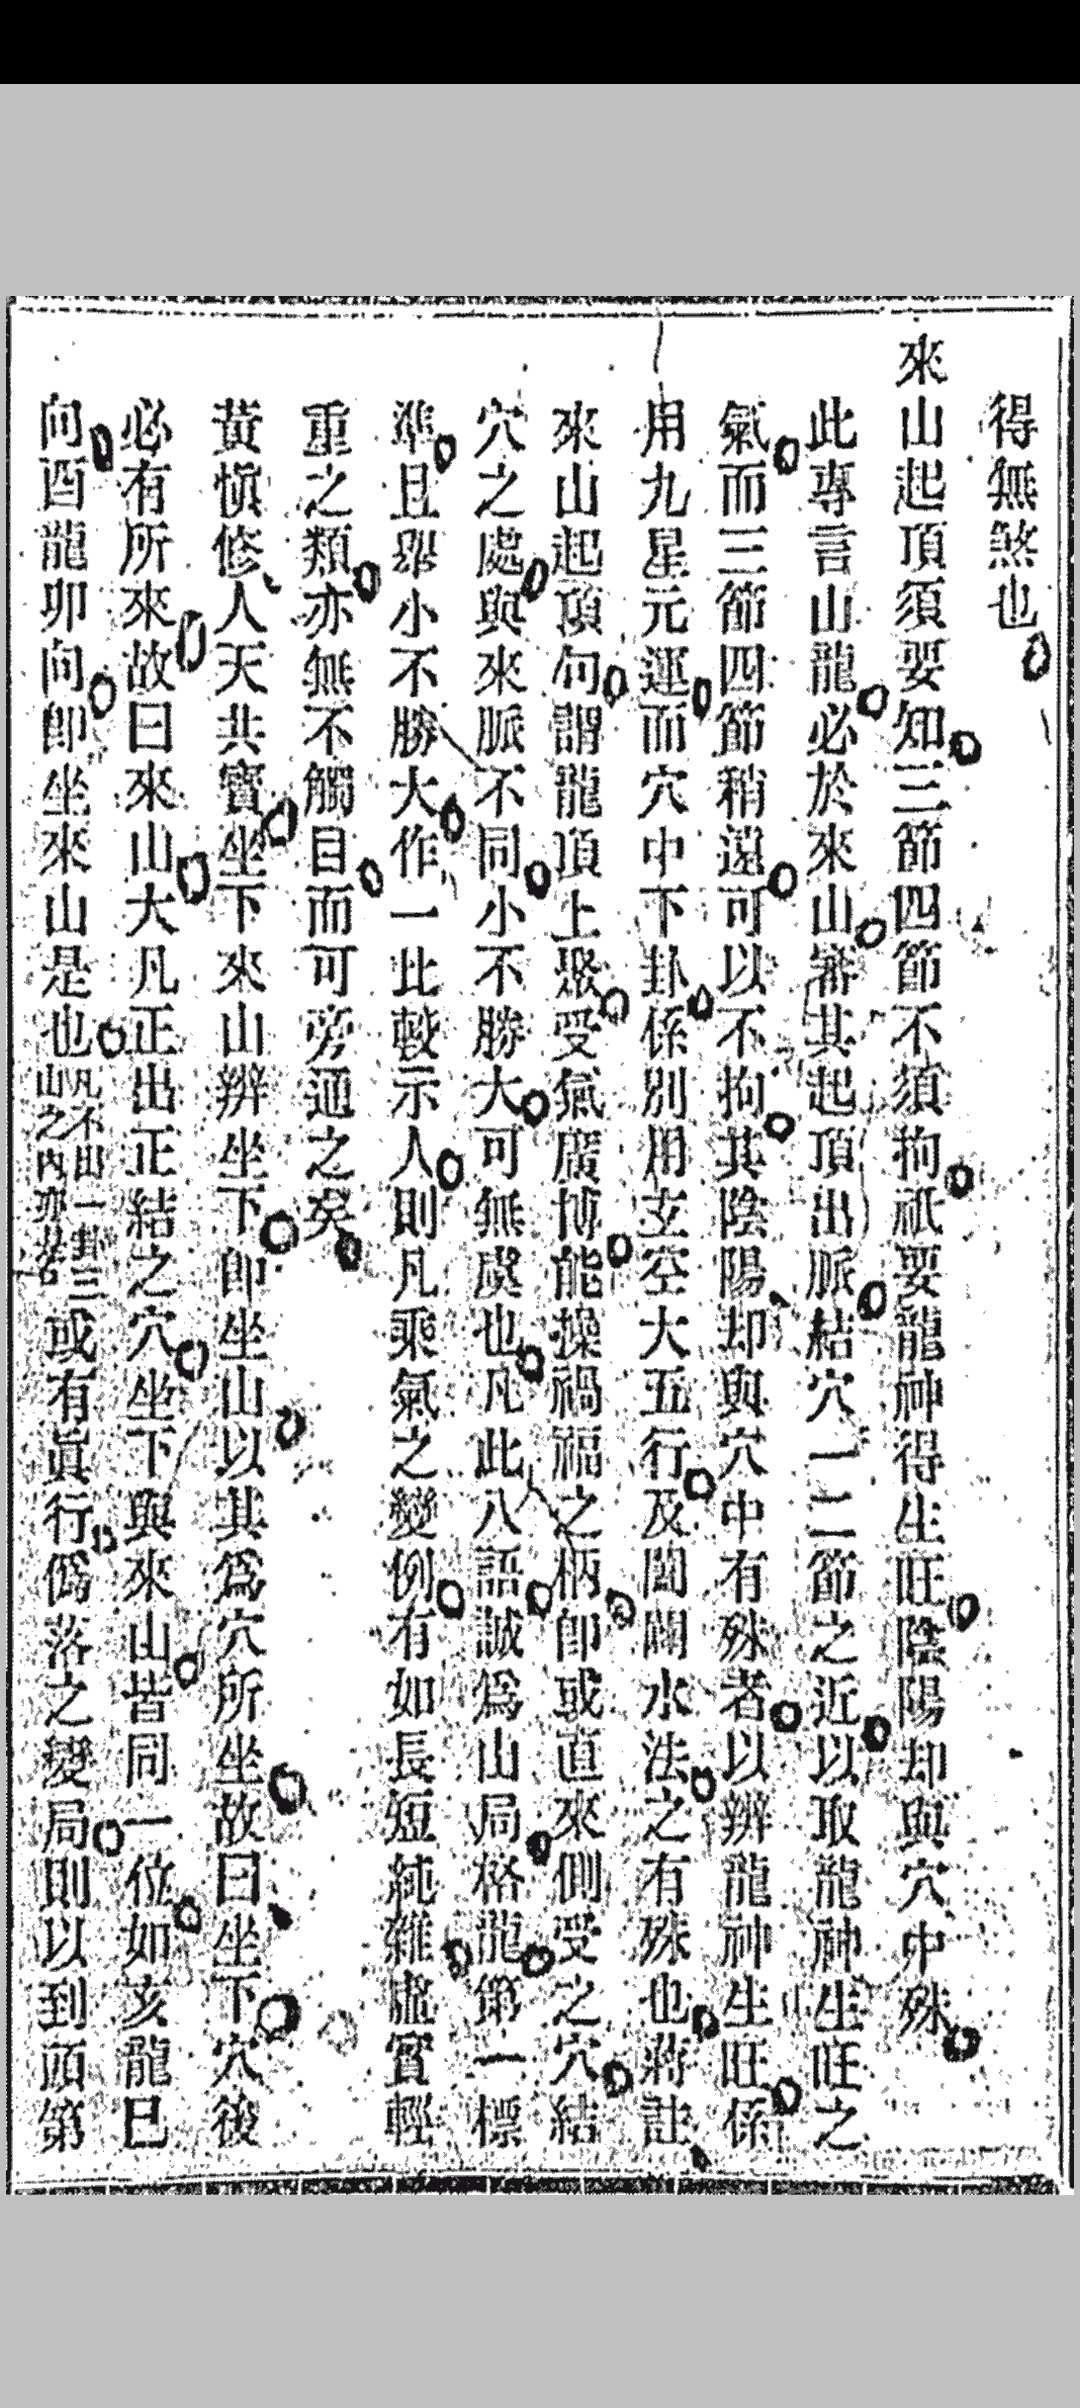 得無煞也
來山起頂須要知三節四節不須拘祇要龍神得生旺陰陽却與穴中殊
此專言山龍必於來山審其起頂出脈結穴一二節之近以取龍神生旺之
氣而三節四節稍遠可以不拘其陰陽却與穴中有殊者以辨龍神生旺係
用九星元運而穴中下卦係別用玄空大五行及闔闢水法之有殊也蔣註
來山起頂句謂龍頂上聚受氣廣博能操禍福之柄卽或直來側受之穴結
穴之處與來脈不同小不勝大可無虞也凡此八語誠爲山局格龍第一標
準且舉小不勝大作一此較示人則凡乘氣之變例有如長短純雜虛實輕
重之類亦無不觸目而可旁通之矣
黃愼修人天共寶坐下來山辨坐下卽坐山以其爲穴所坐故曰坐下穴後
必有所來故曰來山大凡正出正結之穴坐下與來山皆同一位如亥龍巳
向酉龍卯向卽坐來山是也凡不出一卦三山之內亦是或有眞行僞落之變局則以到頭第